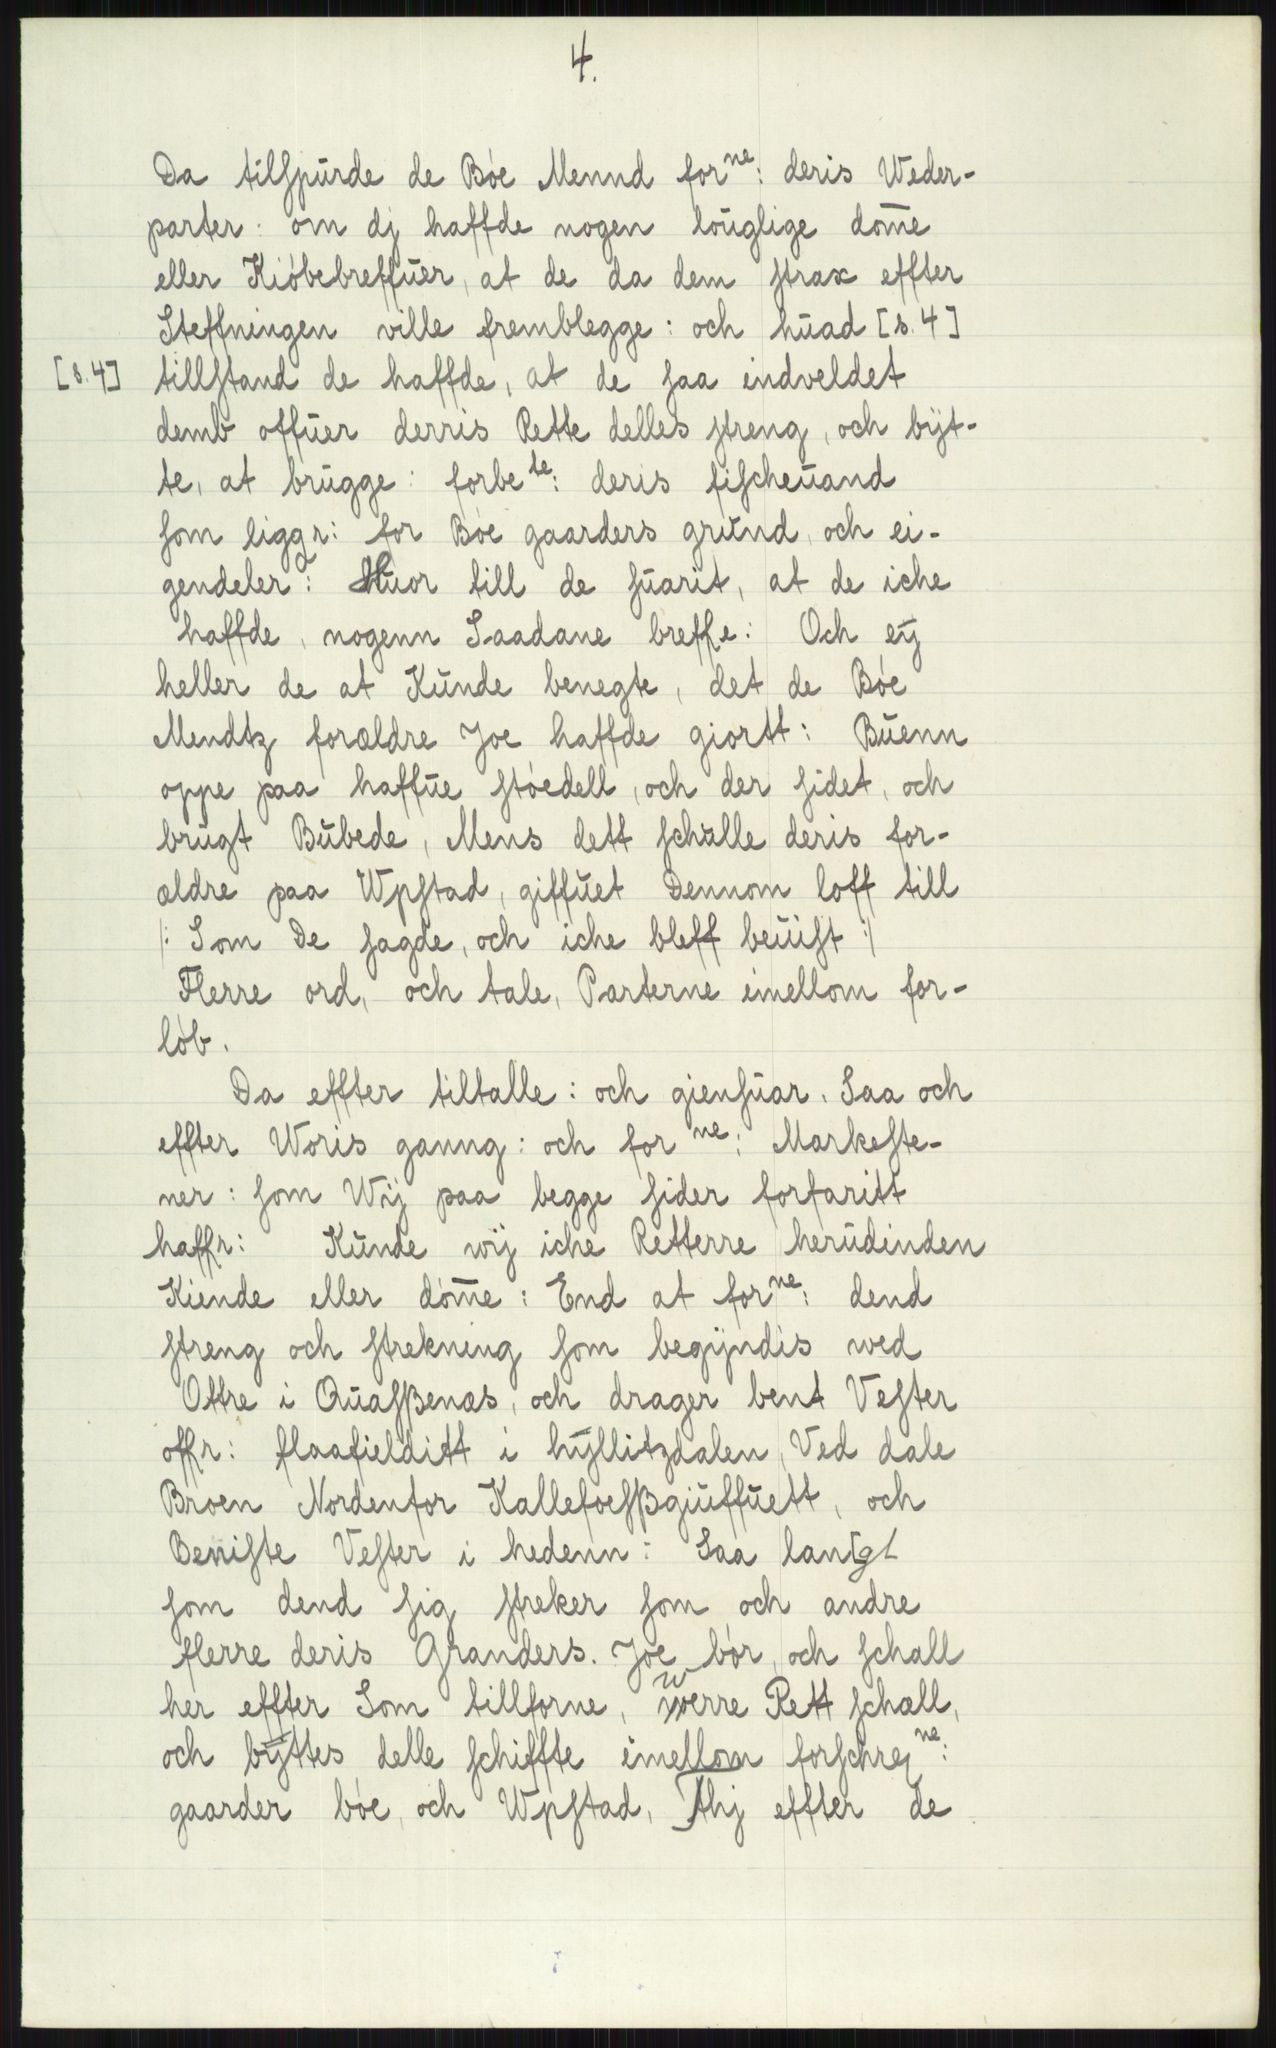 4.
Da tilspurde de Bóe Mennd for^ne: deris Weder-
parter: om dj haffde nogen louglige dom̄e
eller Kióbebreffuer, at de da dem strax effter
Steffningen ville fremblegge: och huad [s. 4]
[s. 4] tillstand de haffde, at de saa indveldet
demb offuer derris Rette delles streng, och bÿt-
te, at brugge: forbe^te: deris fischeuand
som liggr: for Bóe gaarders grund, och ei-
gendeler: Huor till de suarit, at de iche
haffde, nogenn Saadane breffe: Och eÿ
heller de at Kunde benegte, det de Bóe
Mendtz forældre Joe haffde giortt: Buenn
oppe paa haffue stóedell, och der sidet, och
brugt Bubede, Mens dett schulle deris for-
ældre paa Wpstad, giffuet Dennom loff till
/: Som De sagde, och iche bleff beuist :/
Flerre ord, och tale, Parterne imellom for-
lób.
Da effter tiltalle: och giensuar. Saa och
effter Woris ganng: och for^ne: Markeste-
ner: som Wij paa begge sider forfaritt
haffr: Kunde wij iche Retterre herudinden
Kiende eller dóm̄e: End at for^ne: dend
streng och strekning som begÿndis wed
Ottre i Quasßenæs, och drager bent Vester
offr: flaafielditt i hÿllitzdalen, Ved dale
Broen Nordenfor Kallefoesßgiuffuett, och
Beniste Vester i hedenn: Saa lan[g]
som dend sig streker som och andre
flerre deris Granders. Joe bór, och schall
her effter Som tillforne, werre Rett schæll,
och bÿttes delle schiffte imellom forschrej^ne:
gaarder bóe, och Wpstad, Thj effter de